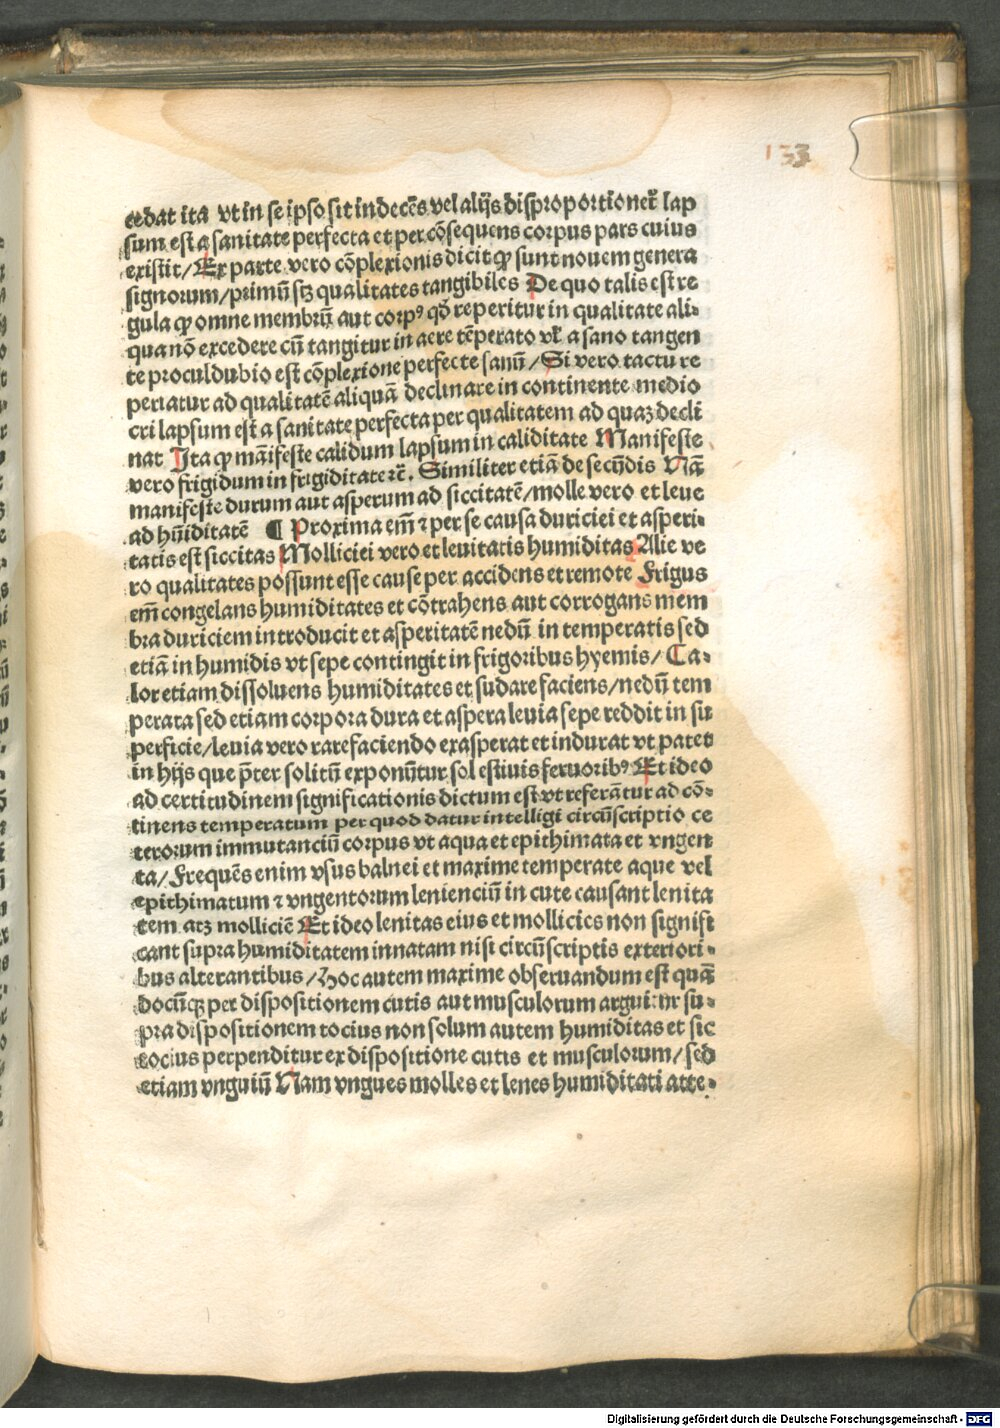 133
cedat ita vt in se ipso sit indecẽs vel alijs disproportionet᷑ lap
sum est a sanitate perfecta et per cõsequens corpus pars cuius
existit/Ex parte vero cõplexionis dicit ꝙ sunt nouem genera
signorum/primũ scꝫ qualitates tangibiles De quo talis est re
gula ꝙ omne membrũ aut corpꝰ qď reperitur in qualitate ali⸗
qua nõ excedere cũ tangitur in aere tẽperato vľ a sano tangen
te proculdubio est cõplexione perfecte sanũ/Si vero tactu re
periatur ad qualitatẽ aliquã declinare in continente medio
cri lapsum est a sanitate perfecta per qualitatem ad quaꝫ decli
nat Ita ꝙ mãifeste calidum lapsum in caliditate Manifeste
vero frigidum in frigiditate ⁊c̃. Similiter etiã de secũdis Nã
manifeste durum aut asperum ad siccitatẽ/molle vero et leue
ad hũiditatẽ ¶ Proxima em̃ ⁊ per se causa duriciei et asperi⸗
tatis est siccitas Molliciei vero et leuitatis humiditas Alie ve
ro qualitates possunt esse cause per accidens et remote Frigus
em̃ congelans humiditates et cõtrahens aut corrogans mem
bra duriciem introducit et asperitatẽ nedũ in temperatis sed
etiã in humidis vt sepe contingit in frigoribus hyemis/Ca⸗
lor etiam dissoluens humiditates et sudare faciens/nedũ tem
perata sed etiam corpora dura et aspera leuia sepe reddit in su
perficie/leuia vero rarefaciendo exasperat et indurat vt patet
in hijs que p̃ter solitũ exponũtur sol estiuis feruoribꝰ Et ideo
ad certitudinem significationis dictum est vt referãtur ad cõ⸗
tinens temperatum per quod datur intelligi circũscriptio ce
terorum immutanciũ corpus vt aqua et epithimata et vngen
ta/Frequẽs enim vsus balnei et maxime temperate aque vel
epithimatum ⁊ vngentorum lenienciũ in cute causant lenita
tem atꝫ molliciẽ Et ideo lenitas eius et mollicies non signifi
cant supra humiditatem innatam nisi circũscriptis exteriori⸗
bus alterantibus/Hoc autem maxime obseruandum est quã
docũqꝫ per dispositionem cutis aut musculorum arguitur su⸗
pra dispositionem tocius non solum autem humiditas et sic
tocius perpenditur ex dispositione cutis et musculorum/sed
etiam vnguiũ Nam vngues molles et lenes humiditati atte⸗
Digitalisierung gefördert durch die Deutsche Forschungsgemeinschaft - DFG